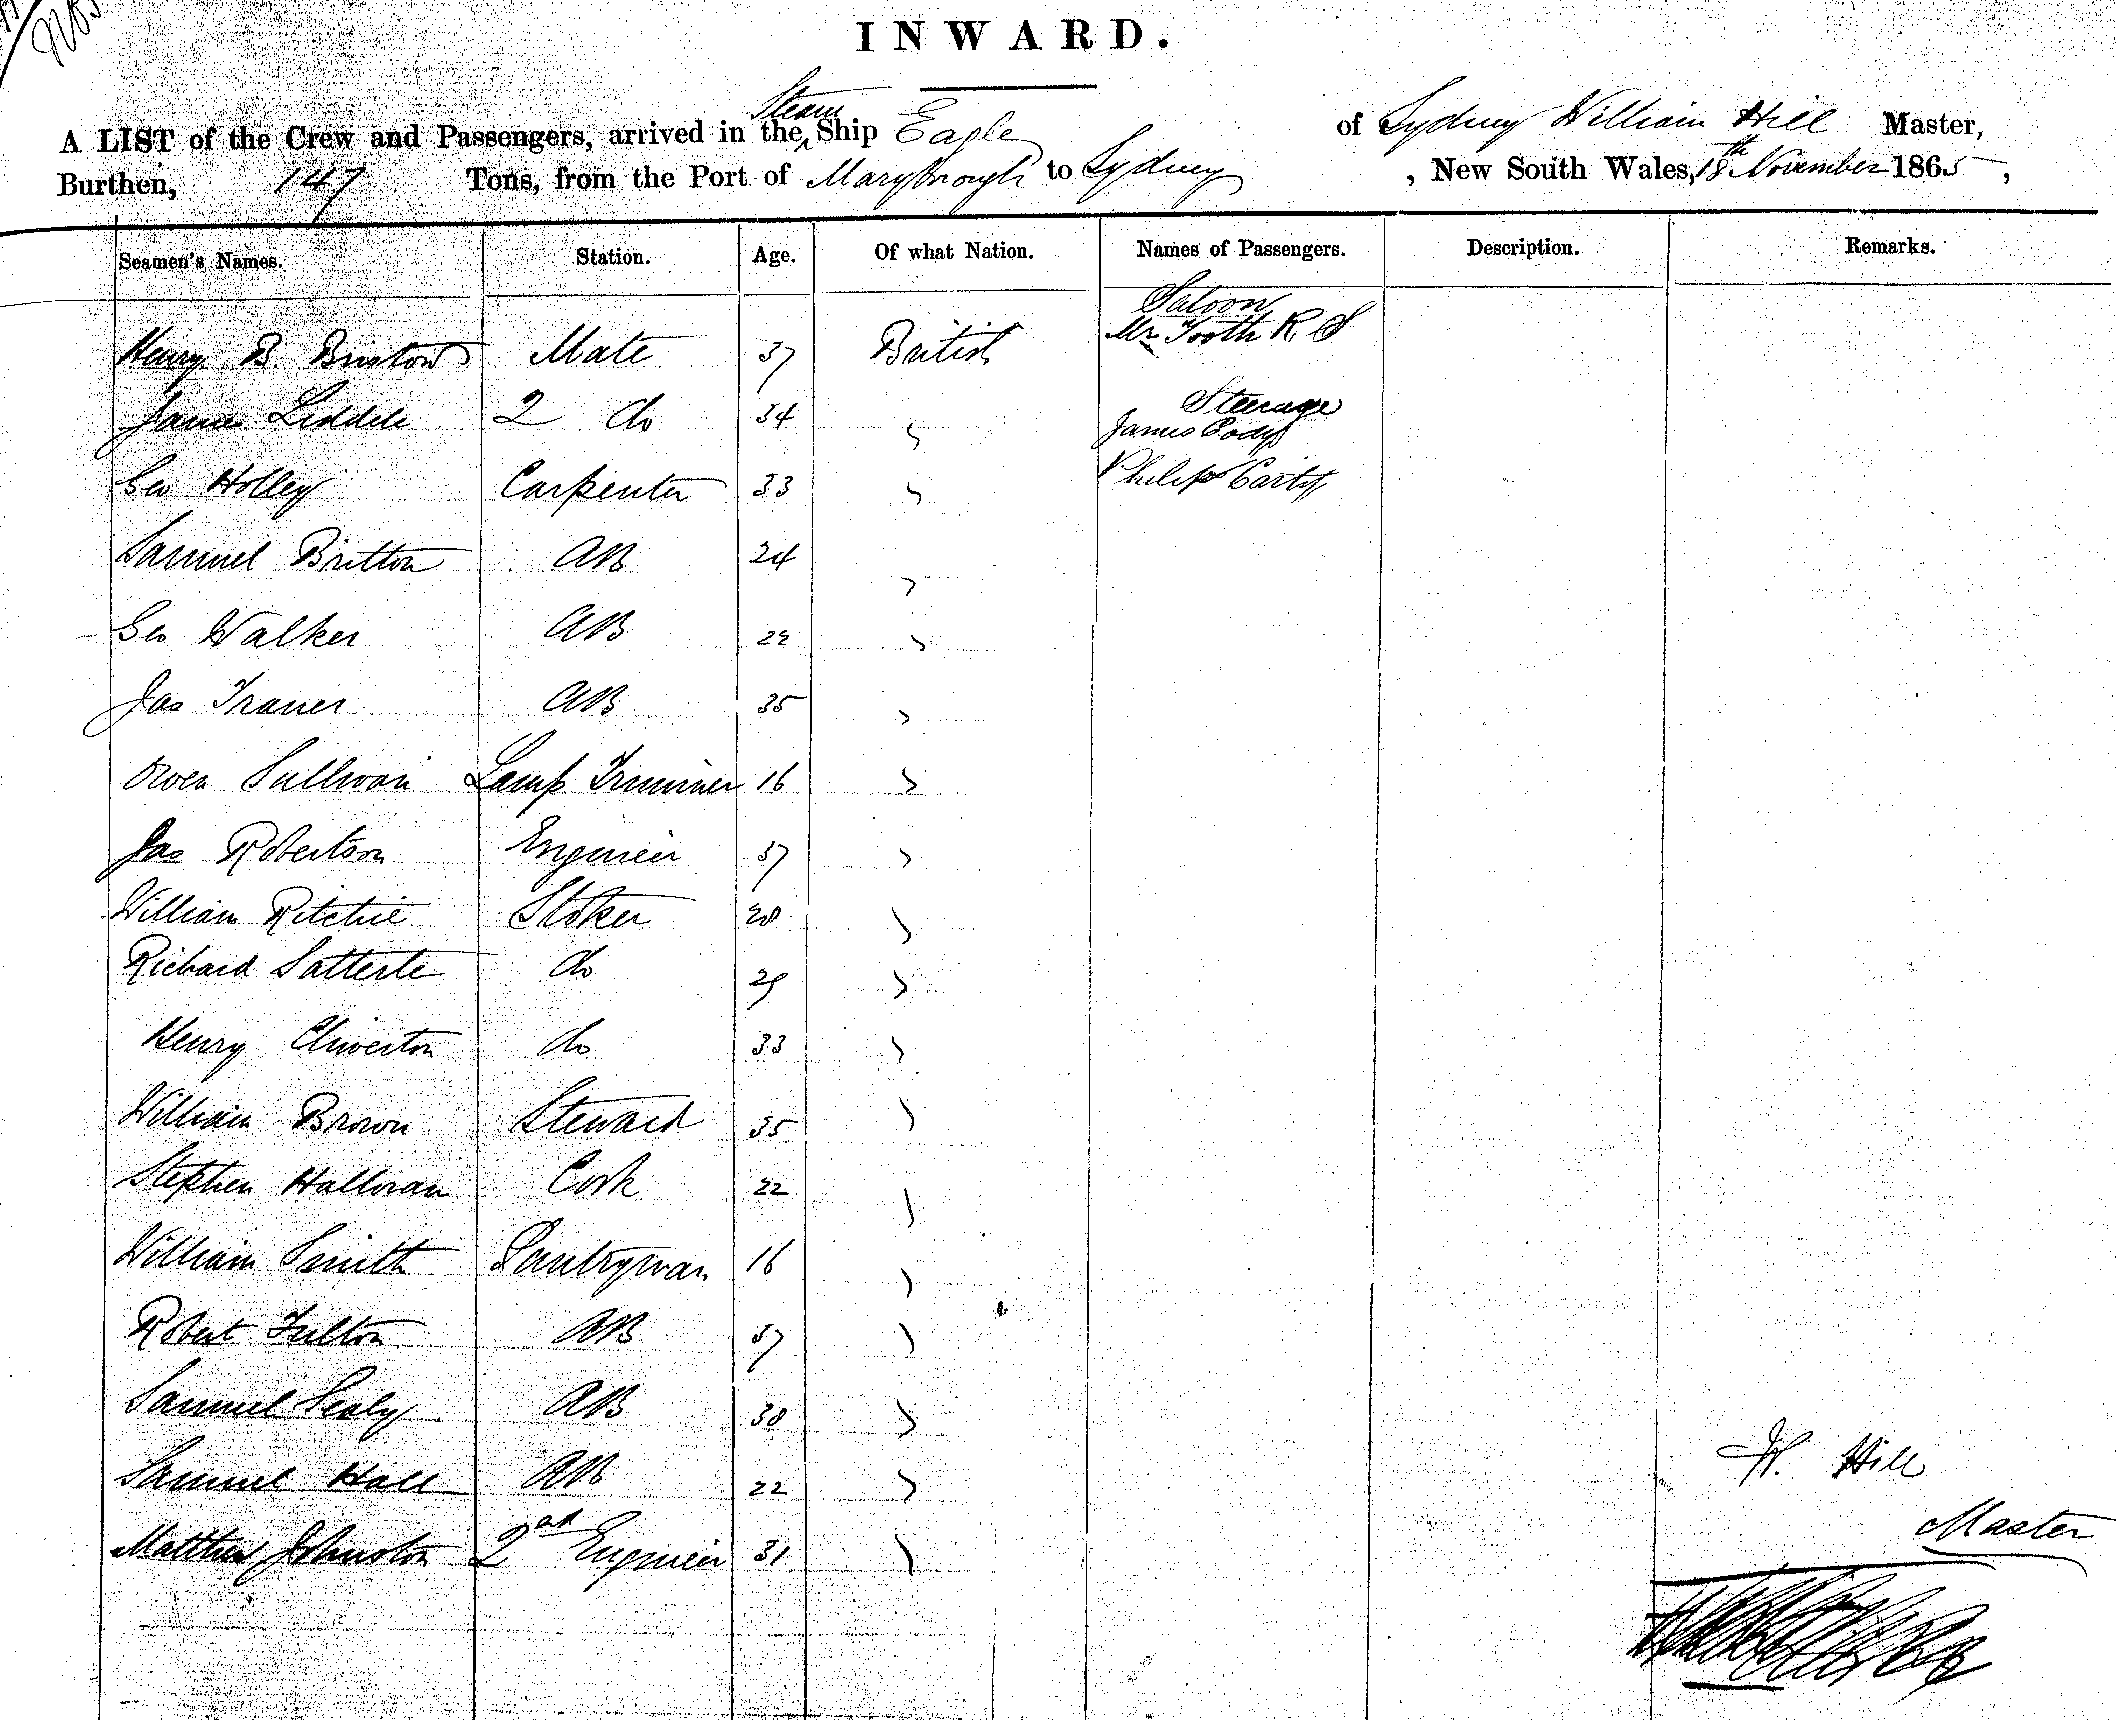 INWARD.
A LIST of the Crew and Passengers, arrived in the Steam Ship Eagle of Sydney William Hill Master,
Burthen, 147 Tons, from the Port of Maryborough to Sydney, New South Wales, 18th November 1865,
Seamen's Names. Station. Age. Of what Nation. Names of Passengers. Description. Remarks.
Saloon
Henry B. Mate 37 British Mr Tooth R S
Steerage
James Liddell 2 do 34 " James Cody
Geo Holley Carpenter 33 " Philip
Samuel Britton AB 24 "
Geo Walker AB 22 "
Jas Traner AB 35 "
Owen Sullivan Lamp Trimmer 16 "
Jas Robertson Engineer 37 "
William Ritchie Stoker "
Richard Satterle do 29 "
Henry Cliverton do 33 "
William Brown Steward 35 "
Stephen Halloran Cook 22 "
William Smith Pantryman 16 "
Robert Fulton AB 37 "
Samuel Sealy AB 30 "
Samuel Hall AB 22 "
Matthew Johnston 2nd Engineer 31 "
W. Hill
Master